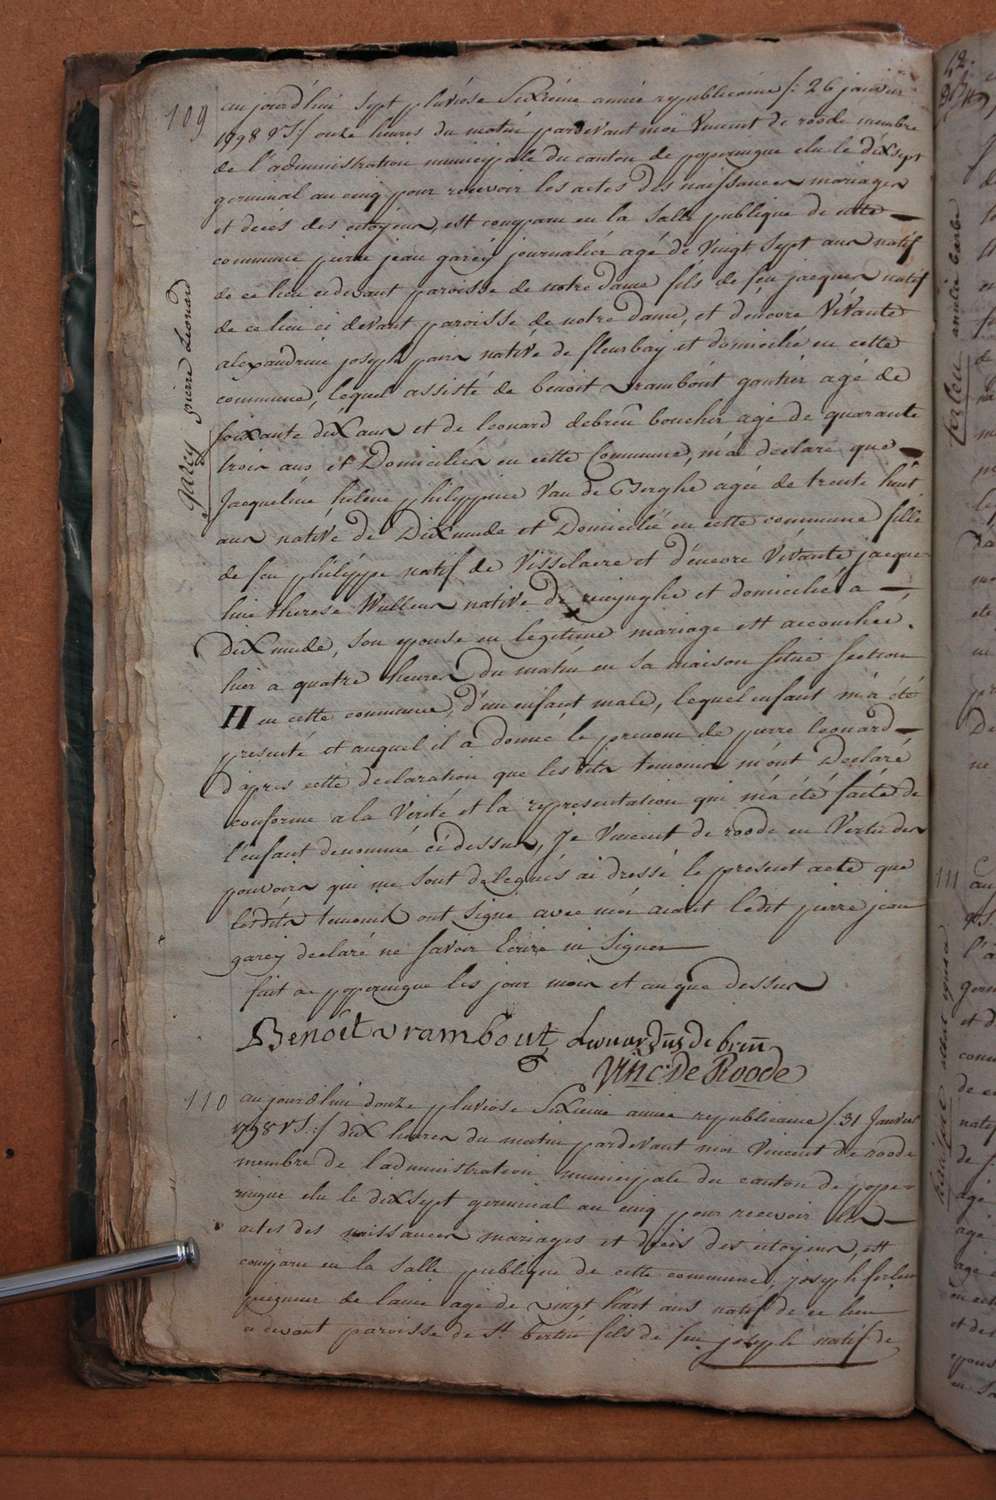 109
aujourd'hui sept pluviôse Sixième année republicaine /: 26 janvier
1798 VS:/ onze heures du matin pardevant moi Vincent de roode membre
de l'administration municipale du canton de poperingue elu le dixsept
germinal an cinq pour recevoir les actes des naissances mariages
et décès des citoyens, est comparu en la salle publique de cette
commune pierre jean garéy journalier agé de Vingt sept ans natif
de ce lieu cidevant paroisse de notre dame fils de feu jacques natif
de ce lieu ci devant paroisse de notre dame, et d'encore Vivante
alexandrine joseph pain native de fleurbay et domiciliée en cette
commune, lequel assisté de benoit vrambout gantier agé de
soixante dix ans et de leonard debreu boucher agé de quarante
trois ans et Domiciliés en cette Commune, m'a declaré que
Jacqueline helene philippine Van de Berghe agée de trente huit
ans native de Dixmude et Domiciliée en cette commune fille
de feu philippe natif de Visselaere et d'encore Vivante jacque
line therese Wullens native de reninghe et domiciliée a
dixmude, son epouse en legitime mariage est accouchée
hier a quatre heures du matin en sa maison située section
H en cette commune, d'un enfant male, lequel enfant m'a été
presenté et auquel il a donné le prenom de pierre leonard
d'apres cette declaration que les dits temoins m'ont Declaré
conforme a la Verité et la representation qui m'a été faite de
l'enfant denommé ci dessus, Je Vincent de roode en Vertu des
pouvoirs qui me sont delegués ai dressé le present acte que
lesdits temoins ont signé avec moi aiant ledit pierre jean
garey declaré ne savoir Ecrire ni Signer
fait a poperingue les jour mois et an que dessus
Benoit vrambout Leonardus de breu
Vinc: De Roode
garey pierre Leonard
110
aujourd'hui douze pluviose Sixieme année republicaine /: 31 Janvier
1798 VS:/ dix heures du matin pardevant moi Vincent de roode
membre de l'administration municipale du canton de pope-
ringue elu le dix sept germinal an cinq pour recevoir les
actes des naissances mariages et décès des citoyens, est
comparu en la salle publique de cette commune, joseph ferleu
peigneur de laine agé de vingt huit ans natif de ce lieu
ci devant paroisse de St bertin fils de feu joseph natif de
ferleu amelie barbe
111